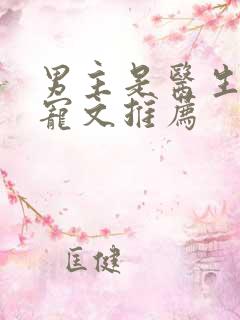 男主是醫生
寵文推薦
匡健